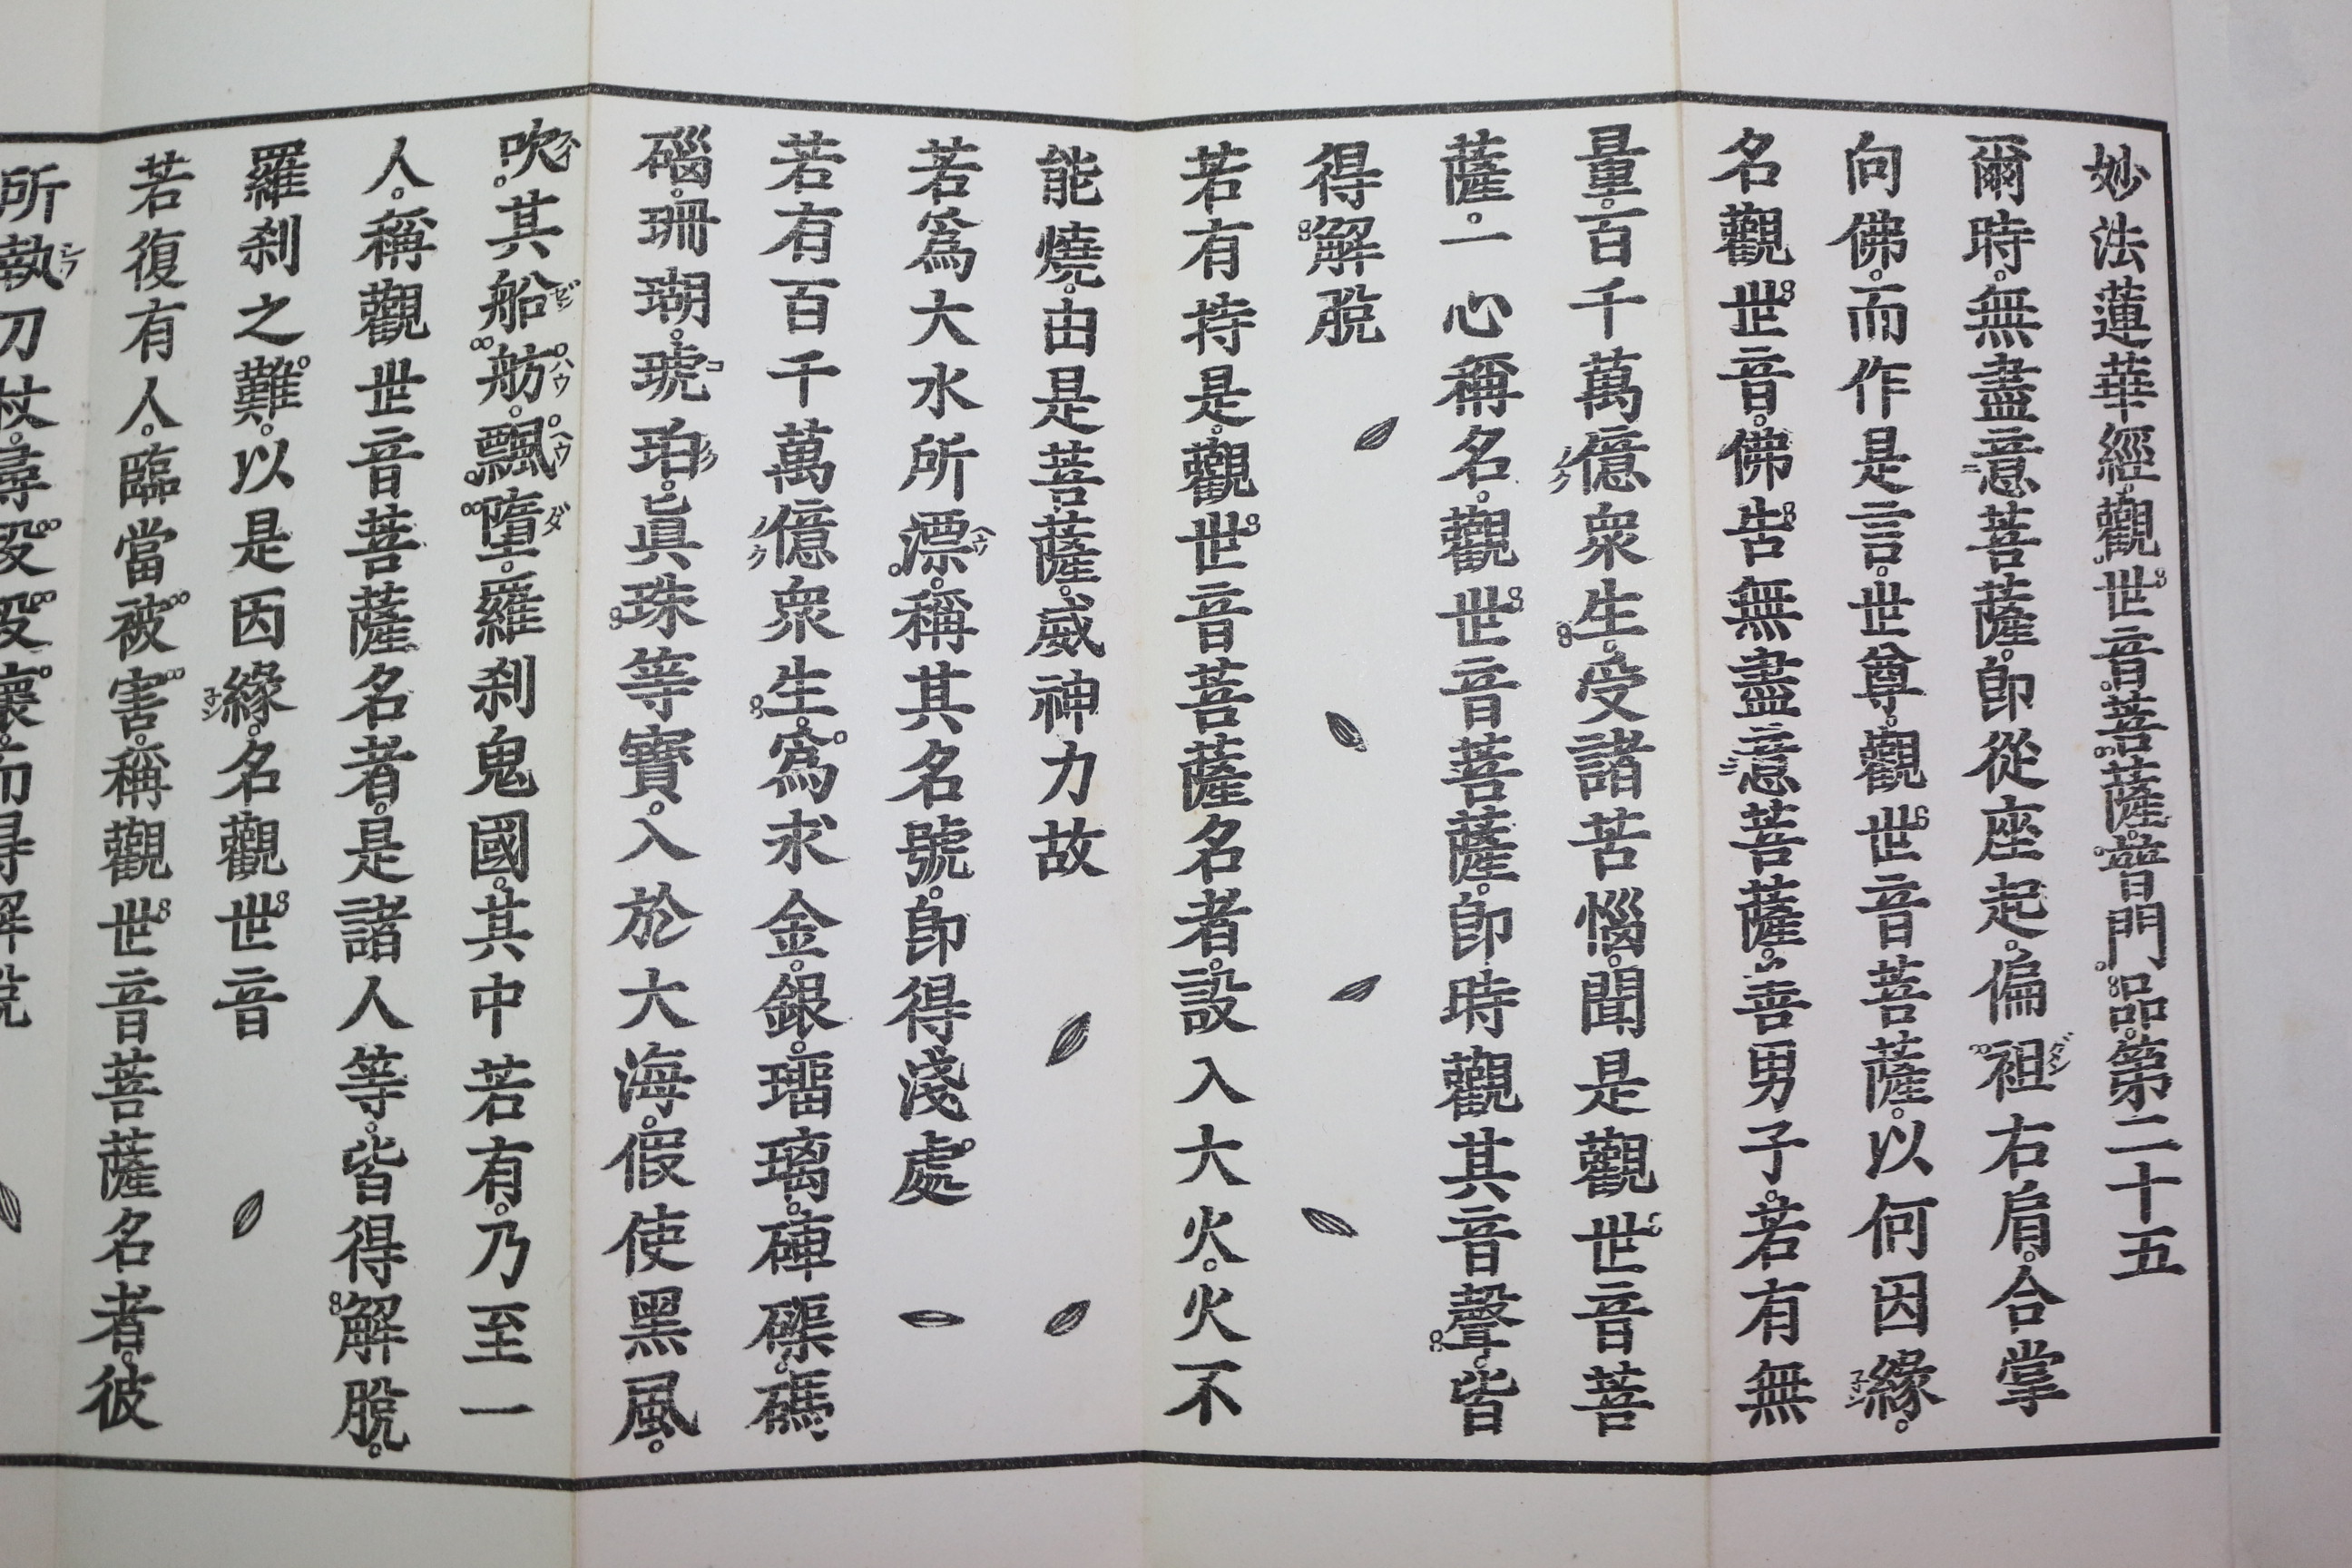 妙法蓮華經觀世音菩薩普門品第二十五
爾時。無盡意菩薩。卽從座起。偏袒右肩。合掌
向佛。而作是言。世尊。觀世音菩薩。以何因緣。
名觀世音。佛告無盡意菩薩。善男子。若有無
量。百千萬億衆生。受諸苦惱。聞是觀世音菩
薩。一心稱名。觀世音菩薩。卽時觀其音聲。皆
得解脫
若有持是。觀世音菩薩名者。設入大火。火不
能燒。由是菩薩。威神力故
若爲大水所漂。稱其名號。卽得淺處
若有百千萬億衆生。爲求金。銀。瑠璃。硨磲。碼
碯。珊瑚。琥珀。眞珠等寶。入於大海。假使黑風。
吹。其船舫。飄墮。羅刹鬼國。其中若有。乃至一
人。稱觀世音菩薩名者。是諸人等。皆得解脫。
羅刹之難。以是因緣。名觀世音
若復有人。臨當被害。稱觀世音菩薩名者。彼
所執刀杖。尋段段壞。而得解脫